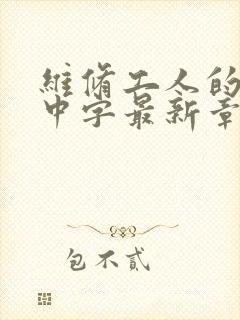 維脩工人的
中字最新章
包不貳